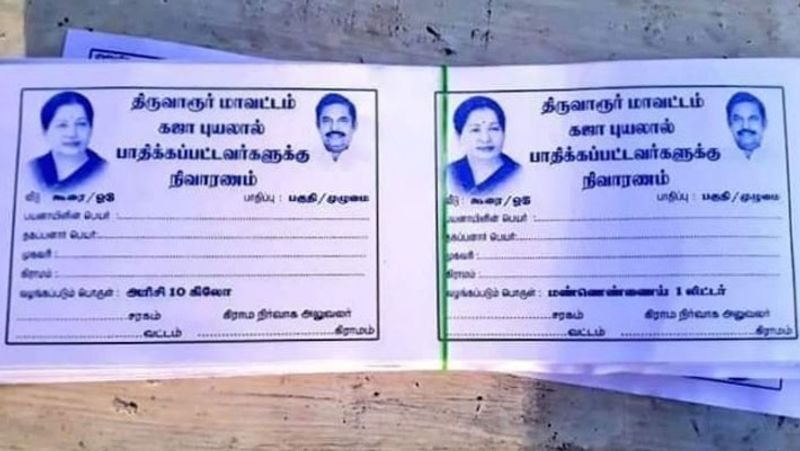 திருவாரூர் மாவட்டம்
கஜா புயலால்
பாதிக்கப்பட்டவர்களுக்கு
நிவாரணம்
வீடு கூரை/ஓடு பாதிப்பு : பகுதி/முழுமை
பயனாயினின் பெயர் :
தகப்பனார் பெயர்:
முகவரி :
கிராமம் :
வழங்கப்படும் பொருள் : அரிசி 10 கிலோ
சரகம் கிராம நிர்வாக அலுவலர்
வட்டம் கிராமம்
திருவாரூர் மாவட்டம்
கஜா புயலால்
பாதிக்கப்பட்டவர்களுக்கு
நிவாரணம்
வீடு கூரை/ஓடு பாதிப்பு : பகுதி/முழுமை
பயனாயினின் பெயர் :
தகப்பனார் பெயர்:
முகவரி :
கிராமம் :
வழங்கப்படும் பொருள் : மண்ணெண்ணைய் 1 லிட்டர்
சரகம் கிராம நிர்வாக அலுவலர்
வட்டம் கிராமம்